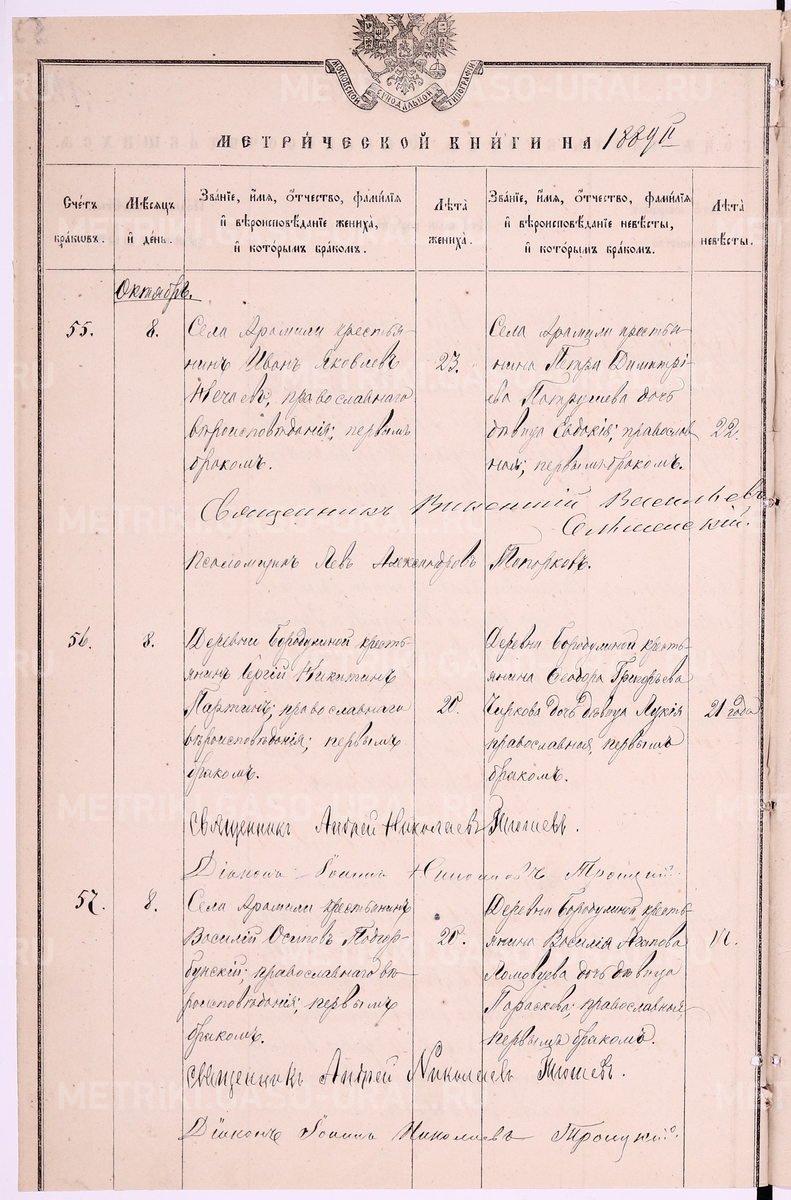 МОСКОВСКОЙ СУНОДАЛЬНОЙ ТИПОГРАФІИ
МЕТРИ́ЧЕСКОЙ КНИ́ГИ НА 1889 г
Сче́тъ бра́ковъ.
Мѣ́сяцъ и де́нь.
Зва́ніе, и́мя, о́тчество, фами́лія и вѣроисповѣ́даніе жениха́, и кото́рымъ бра́комъ.
Лѣта̀ жениха̀.
Зва́ніе, и́мя, о́тчество, фами́лія и вѣроисповѣ́даніе невѣ́сты, и кото́рымъ бра́комъ.
Лѣта̀ невѣ́сты.
Октябрь.
55.
8.
Села Арамили крестья-
нинъ Иванъ Яковлевъ
Нечаевъ, православнаго
вѣроисповѣданія; первымъ
бракомъ.
23.
Села Арамили крестья-
нина Петра Димитрі-
ева Патрушева дочь
дѣвица Евдокія; православ
ная; первымъ бракомъ.
22.
Священникъ Викентій Васильевъ
Псаломщикъ Левъ Александровъ Топорковъ.
56.
8.
Деревни Бородулиной кресть-
янинъ Сергій Никитинъ
Партинъ; православнаго
вѣроисповѣданія; первымъ
бракомъ.
20.
Деревни Бородулиной кресть-
янина Ѳеодора Григорьева
Чиркова дочь дѣвица Лукія
православная, первымъ
бракомъ.
21 года
Священникъ Андрей Николаевъ
Діаконъ Іоаннъ Николаевъ Троицкій.
57.
8.
Села Арамили крестьянинъ
Василій Осиповъ Подгор-
бунскій; православнаго вѣ-
роисповѣданія; первымъ
бракомъ.
20.
Деревни Бородулиной кресть-
янина Василія Агапова
дочь дѣвица
Параскева; православная,
первымъ бракомъ.
Священникъ Андрей Николаевъ
Діаконъ Іоаннъ Николаевъ Троицкій.
METRIKI.GASO-URAL.RU